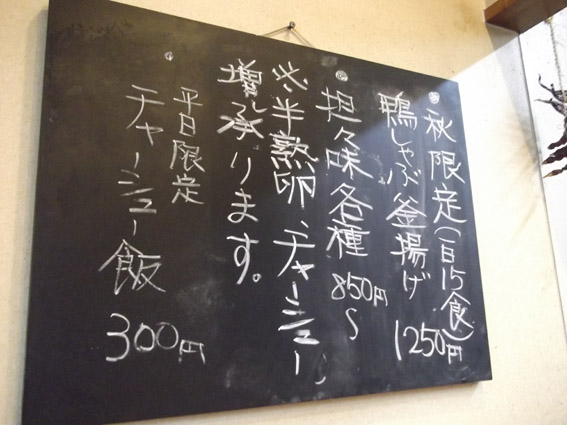 秋限定(一日15食)
鴨しゃぶ釜揚げ 1250円
担々味各種 850円〜
※半熟卵、チャーシュー
増し承ります。
平日限定
チャーシュー飯 300円